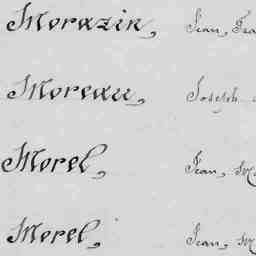 Morazin, Jean, Fra
Moreau, Joseph
Morel, Jean,
Morel, Jean,